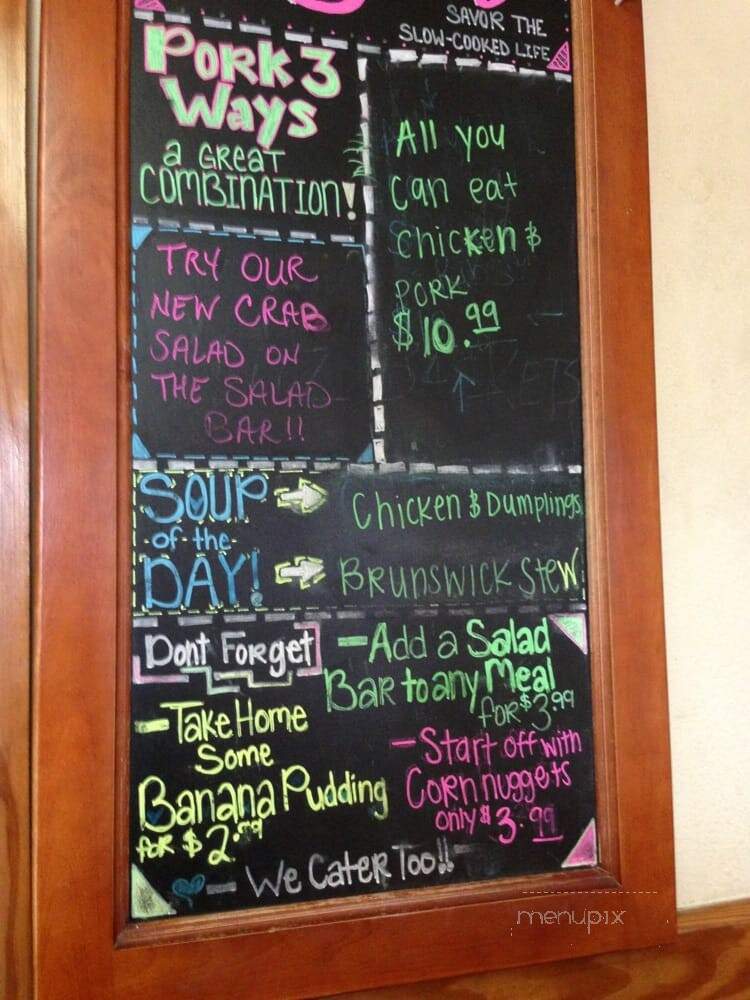 SAVOR THE
SLOW-COOKED LIFE
PORK 3
Ways
a GREAT
COMBINATION!
All you
can eat
chicken &
PORK
$10.99
TRY OUR
NEW CRAB
SALAD ON
THE SALAD
BAR!!
SOUP
of the
DAY!
Chicken & Dumplings
BRUNSWICK STEW
Dont Forget
- Add a Salad
Bar to any Meal
for $3.99
- Take Home
Some
Banana Pudding
for $2.99
- Start off with
Corn nuggets
only $3.99
- We Cater Too!! -
menupix